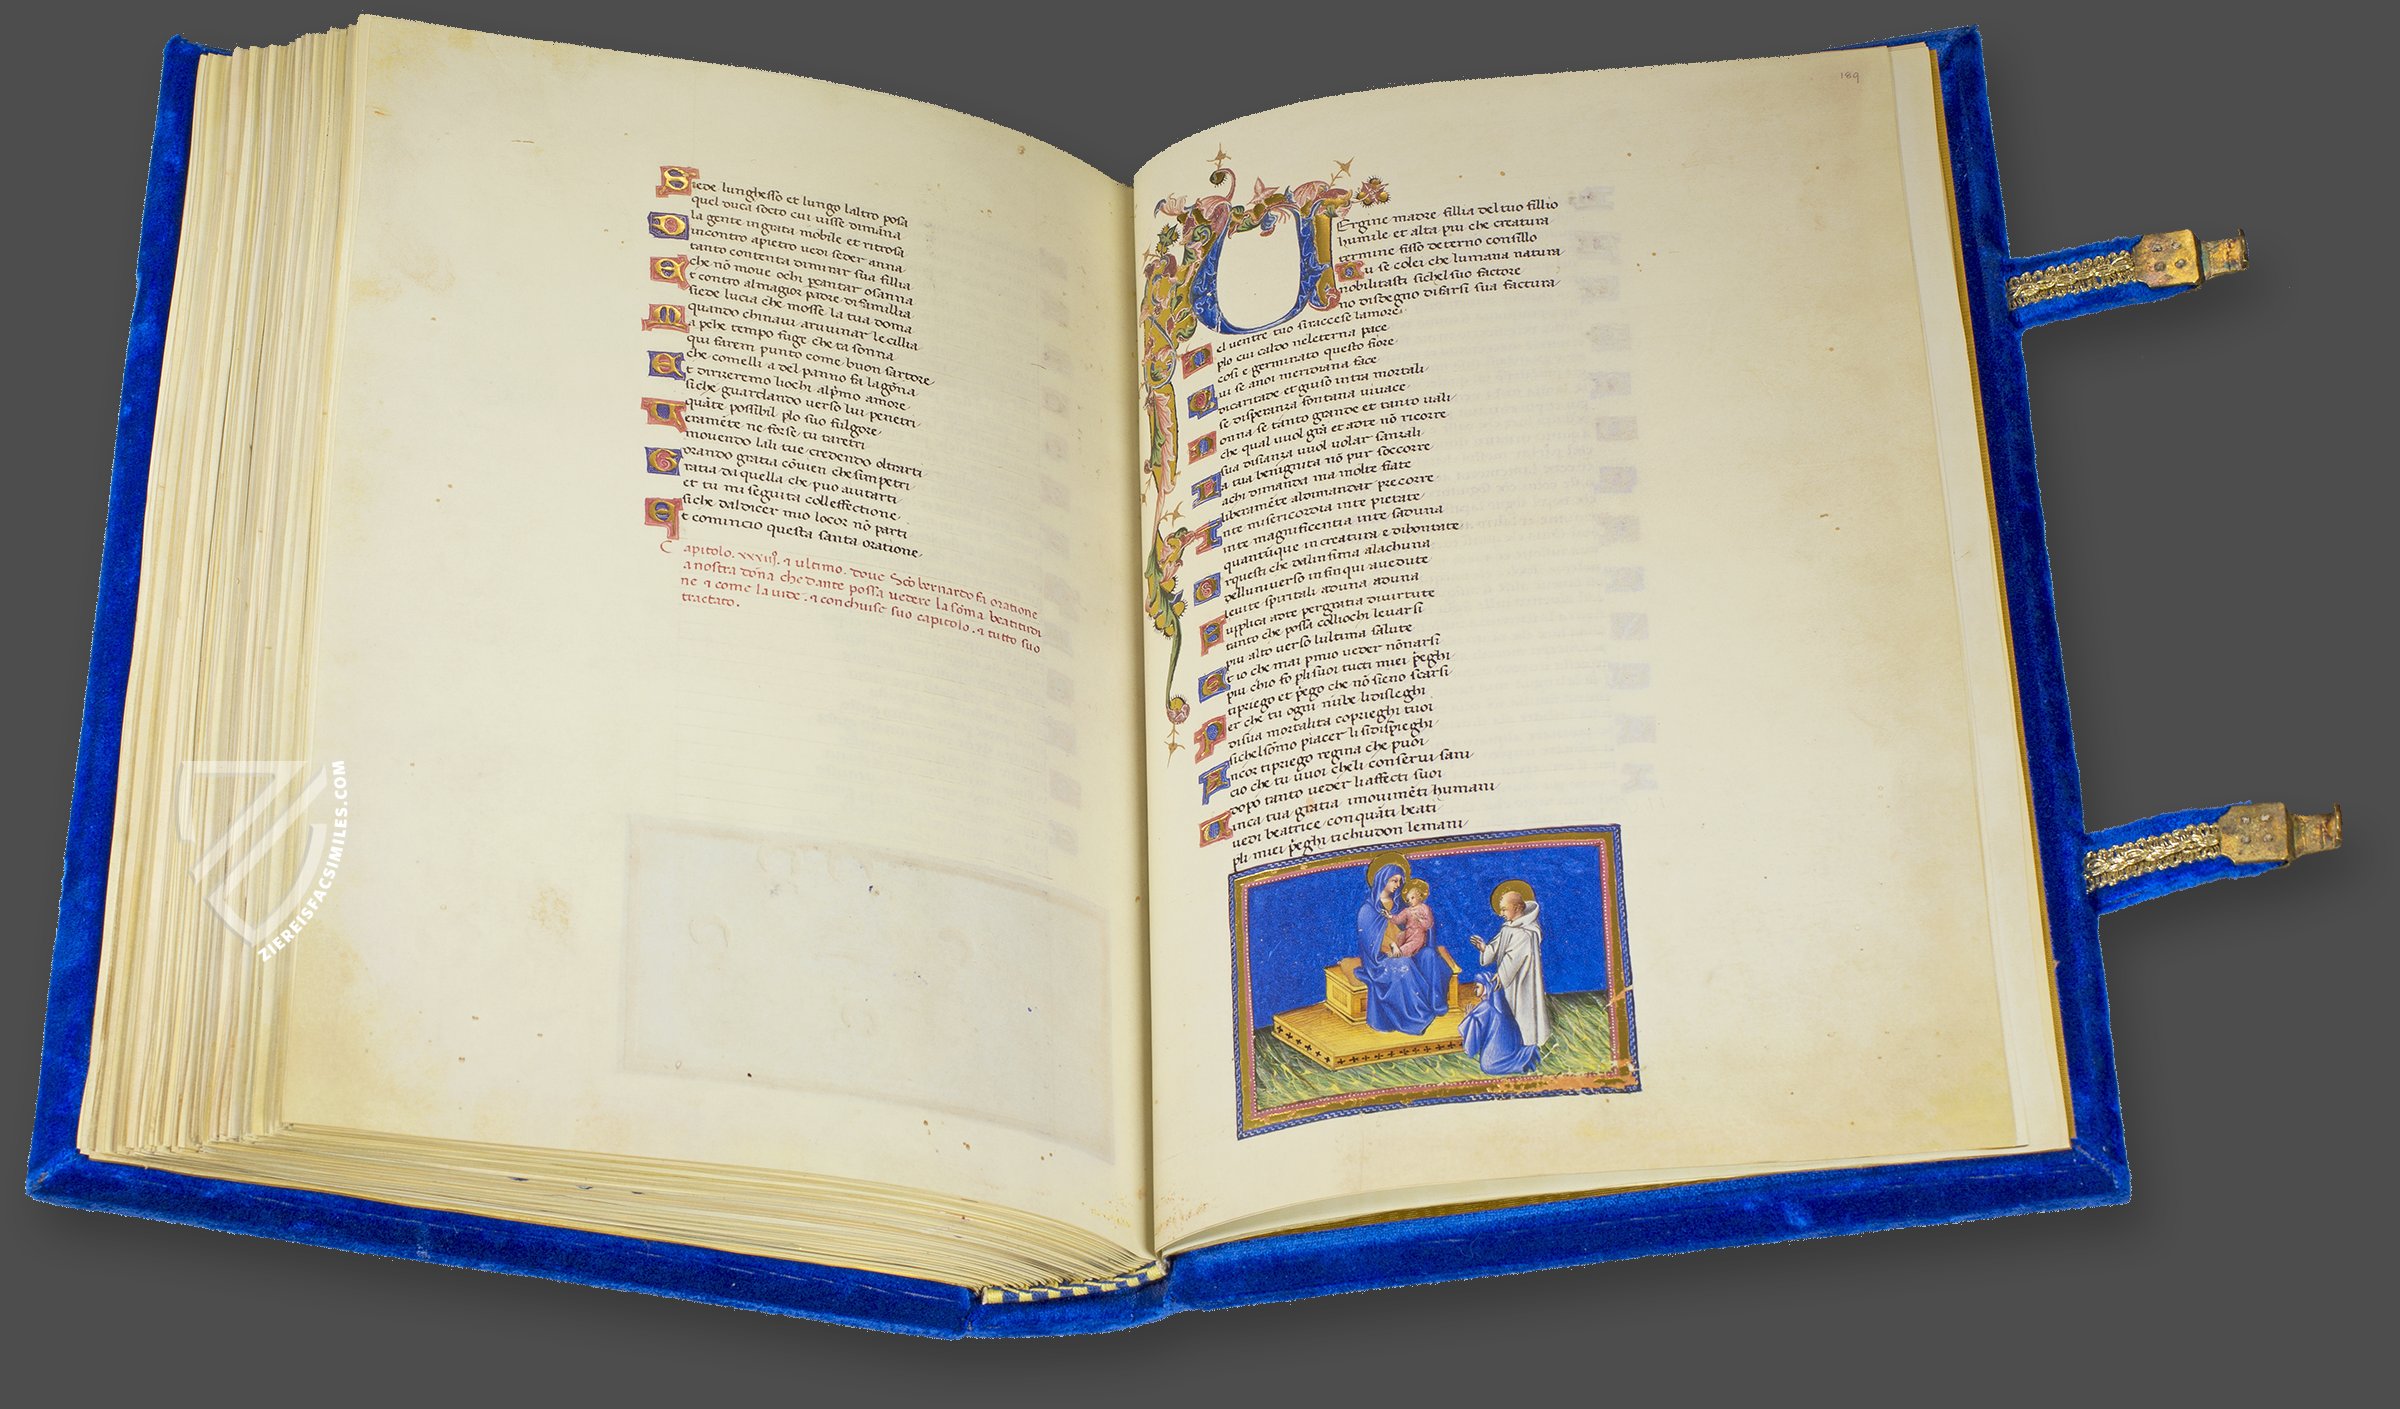 Siede lunghesso et lungo laltro posa
quel duca socto cui uisse dimāna
la gente ingrata mobile et ritrosa
Dincontro apietro uedi seder anna
tanto contenta dimirar sua fillia
che nō moue ochi p cantar osanna
Et contro almagior padre di famillia
siede lucia che mosse la tua dōna
quando chinaui aruuinar le cillia
Ma pche tempo fuge che ta sonna
qui farem punto come buon sartore
che comelli a del panno fa lagōna
Et dirizeremo liochi alpmo amore
siche guardando uerso lui penetri
quāte possibil plo suo fulgore
Ueramēte ne forse tu taretri
mouendo lali tue credendo oltrarti
orando gratia cōuien che simpetri
Gratia da quella che puo aiutarti
et tu mi seguita colleffectione
siche daldicer mio locor nō parti
Et comincio questa santa oratione
Capitolo. xxxiij°. ⁊ ultimo. doue Scō bernardo fa oratione
a nostra dōna che dante possa uedere la sōma beatitudi
ne ⁊ come la uide. ⁊ conchiuse suo capitolo. ⁊ tutto suo
tractato.
189
UErgine madre fillia del tuo fillio
humile et alta piu che creatura
termine fisso deterno consillo
Tu se colei che lumana natura
nobilitasti sichel suo factore
no disdegno difarsi sua factura
Nel uentre tuo siraccese lamore
plo cui caldo neleterna pace
cosi e germinato questo fiore
Qui se anoi meridiana face
dicaritade et giuso intra mortali
se disperanza fontana uiuace
Donna se tanto grande et tanto uali
che qual uuol grā et adte nō ricorre
sua disianza uuol uolar sanzali
La tua benignita nō pur soccorre
achi dimanda ma molte fiate
liberamēte aldimandar precorre
Inte misericordia inte pietate
inte magnificentia inte saduna
quantūque in creatura e dibontate
Or questi che dalinfima alachuna
delluniuerso infin qui a uedute
leuite spiritali aduna aduna
Supplica adte per gratia diuirtute
tanto che possa colliochi leuarsi
piu alto uerso lultima salute
Et io che mai pmio ueder nōn arsi
piu chio fo pli suoi tucti miei pēghi
tipriego et pēgo che nō sieno scarsi
Per che tu ogni nube lidisleghi
disua mortalita coprieghi tuoi
sichel sōmo piacer li sidispieghi
Ancor tipriego regina che puoi
cio che tu uuoi cheli conserui sani
dopo tanto ueder li affecti suoi
Uinca tua gratia imouimēti humani
uedi beatrice con quāti beati
pli miei pēghi tichiudon lemani
ZIEREISFACSIMILES.COM